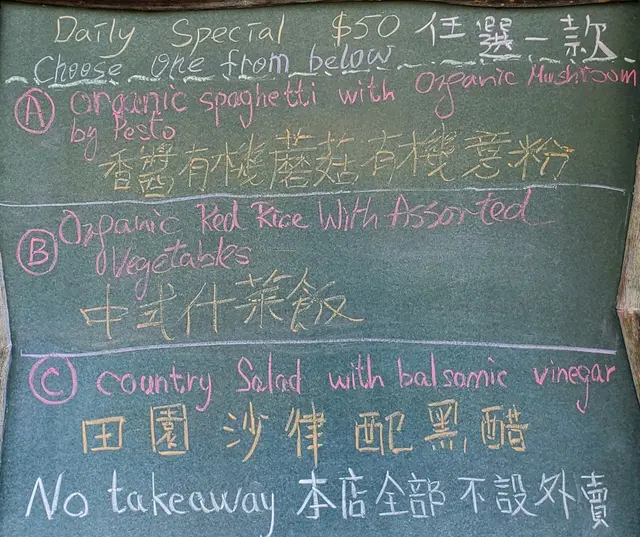 Daily Special $50 任選一款
Choose one from below
Ⓐ organic spaghetti with Organic Mushroom
by Pesto
香醬有機蘑菇有機意粉
Ⓑ Organic Red Rice With Assorted
Vegetables
中式什菜飯
Ⓒ country Salad with balsamic vinegar
田園沙律配黑醋
No takeaway 本店全部不設外賣